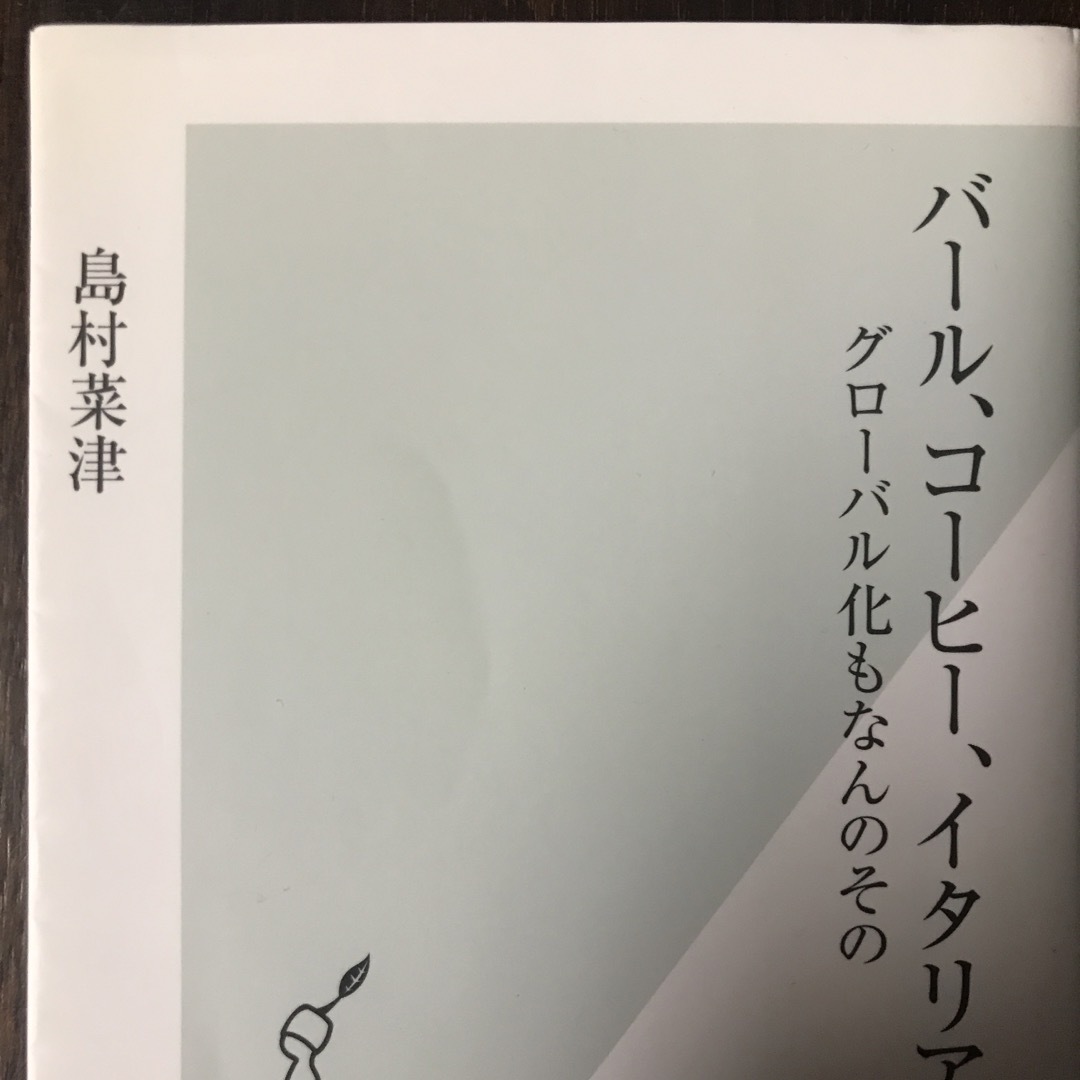 バール、コーヒー、イタリア
グローバル化もなんのその
島村菜津